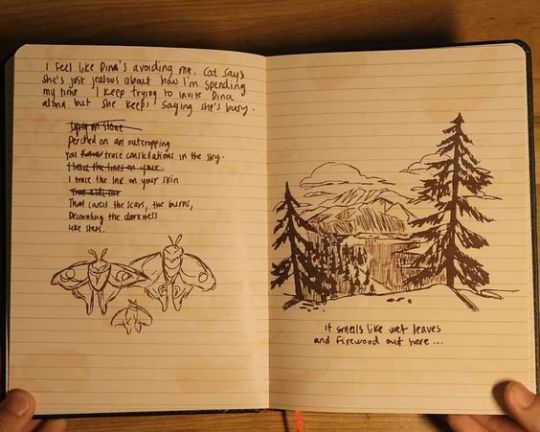 I feel like Dina's avoiding me. Cat says
she's just jealous about how I'm spending
my time. I keep trying to invite Dina
along but she keeps saying she's busy.
Lying on stone
Perched on an outcropping
You trace constellations in the sky.
I trace the lines on your
I trace the ink on your skin
That covers the scars, the burns,
Decorating the darkness
Like stars.
it smells like wet leaves
and firewood out here...